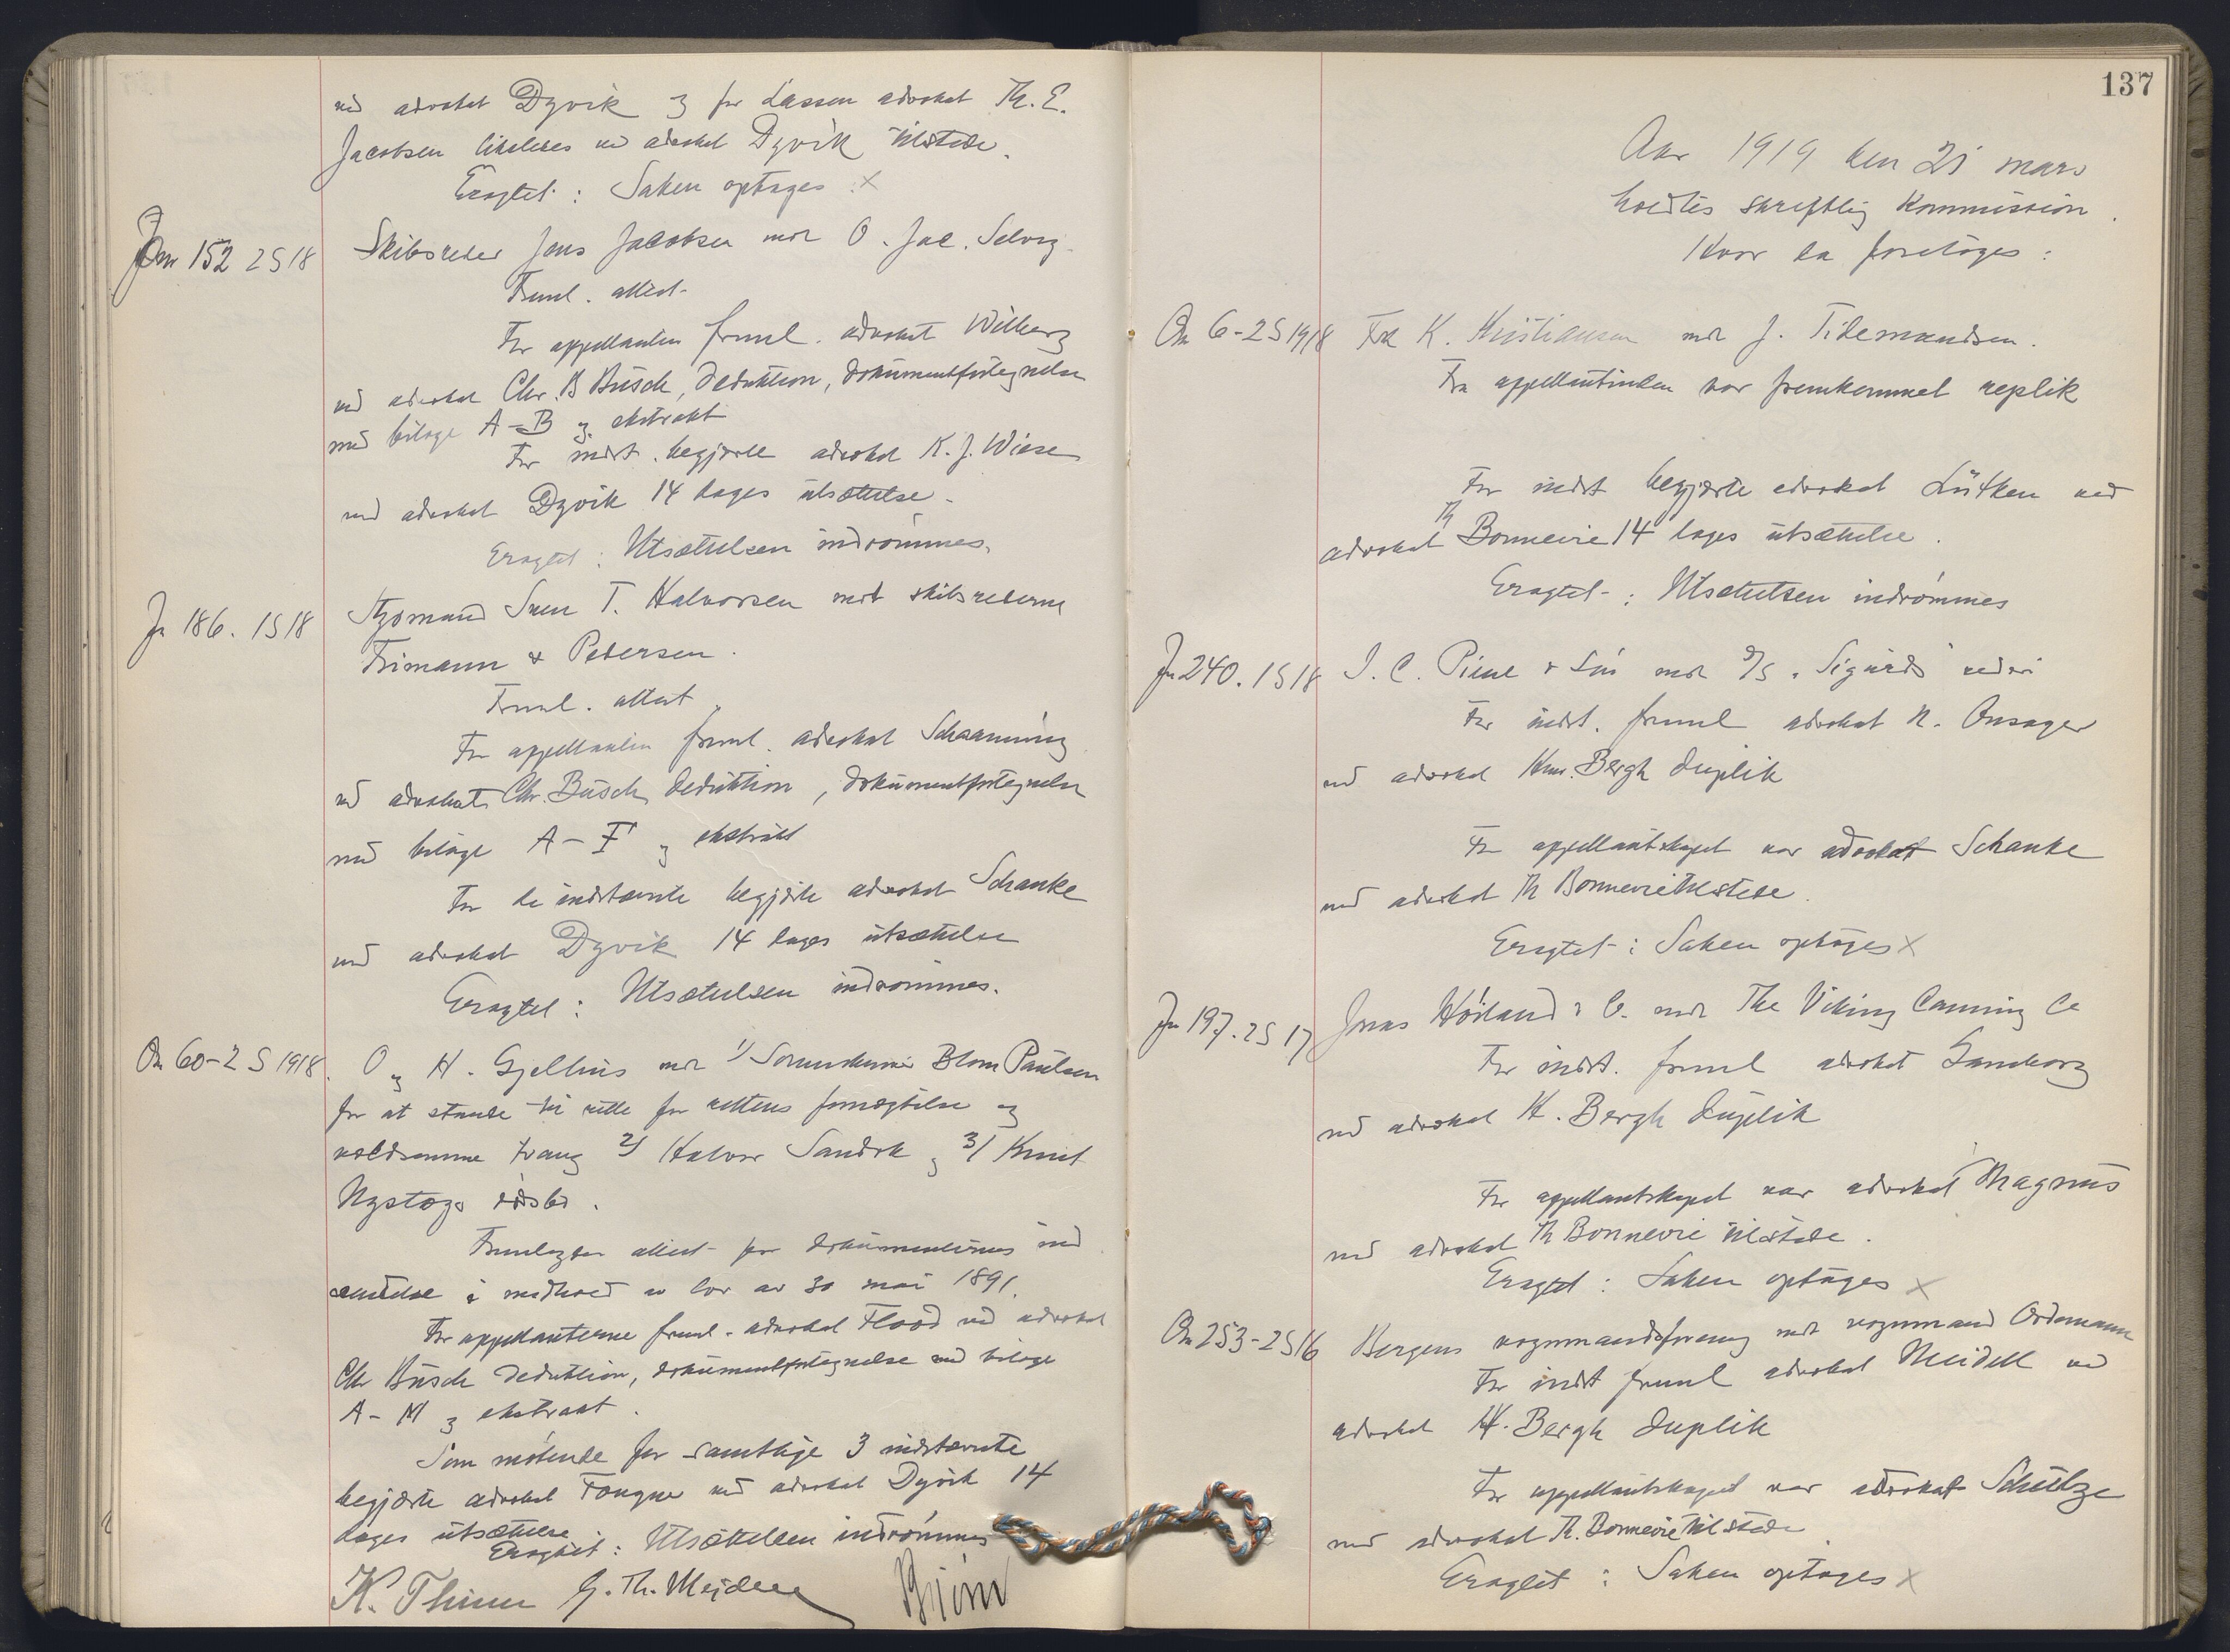 ved advokat Dyvik og for Lassen advokat Th. E.
Jacobsen likeledes ved advokat Dyvik tilstede.
Eragtet: Saken optages X
152 2S18
Skibsreder Jens Jacobsen mot O. Jac. Selvig.
Freml. attest
For appellanten freml. advokat Wilberg
ved advokat Chr. B Büsch, deduktion, dokumentfortegnelse
med bilage A-B og ekstrakt
For indst. begjærte advokat K. J. Wiese
ved advokat Dyvik 14 dages utsættelse.
Eragtet: Utsættelsen indrømmes.
186. 1S18
Styrmand Sven T. Halvorsen mot skibsrederne
Frimann & Petersen.
Freml. attest
For appellanten freml. advokat Schanning
ved advokat Chr. Büsch deduktion, dokumentfortegnelse
med bilage A-F og ekstrakt
For de indstævnte begjærte advokat Schanke
ved advokat Dyvik 14 dages utsættelse
Eragtet: Utsættelsen indrømmes.
On 60-2 S 1918.
O og H. Gjellhus mot 1/ Blom Paulsen
for at stande til rette for rettens fornegtelse og
voldsomme tvang 2/ Halvor Sandok og 3/ Knut
Nystogs dødsbo.
Fremlagdes attest for dokumenternes ind
sendelse i medhold av lov av 30 mai 1891.
For appellanterne freml. advokat Flood ved advokat
Chr Büsch deduktion, dokumentfortegnelse med bilage
A-M og ekstrakt.
Som møtende for samtlige 3 indstævnte
begjærte advokat Fougner ved advokat Dyvik 14
dages utsættelse
Eragtet: Utsættelsen indrømmes
K. Thinn G. Th. Mejdell
137
Aar 1919 den 21 mars
holdtes skriftlig Kommission.
Hvor da foretoges:
On 6-2S1918
Frk K. Kristiansen mot J. Tidemandsen.
Fra appellantinden var fremkommet replik
For indst begjærte advokat Lütken ved
advokat Th Bonnevie 14 dages utsættelse.
Eragtet: Utsættelsen indrømmes
240. 1S18
I. C. Piene & Søn mot D/S "Sigurds" rederi
For indst. freml advokat N. Onsager
ved advokat Hm. Bergh duplik
For appellantskapet var advokat Schanke
ved advokat Th Bonnevie tilstede.
Eragtet: Saken optages X
197. 2S 17
Jonas Høiland & Co. mot The Viking Canning Co
For indst. freml advokat Gamborg
ved advokat H. Bergh duplik
For appellantskapet var advokat Magnus
ved advokat Th Bonnevie tilstede.
Eragtet: Saken optages X
On 253-2S16
Bergens vognmandsforening mot vognmand Ordemann
For indst freml advokat Meidell ved
advokat H. Bergh duplik
For appellantskapet var advokat Schulze
ved advokat Th. Bonnevie tilstede
Eragtet: Saken optages X